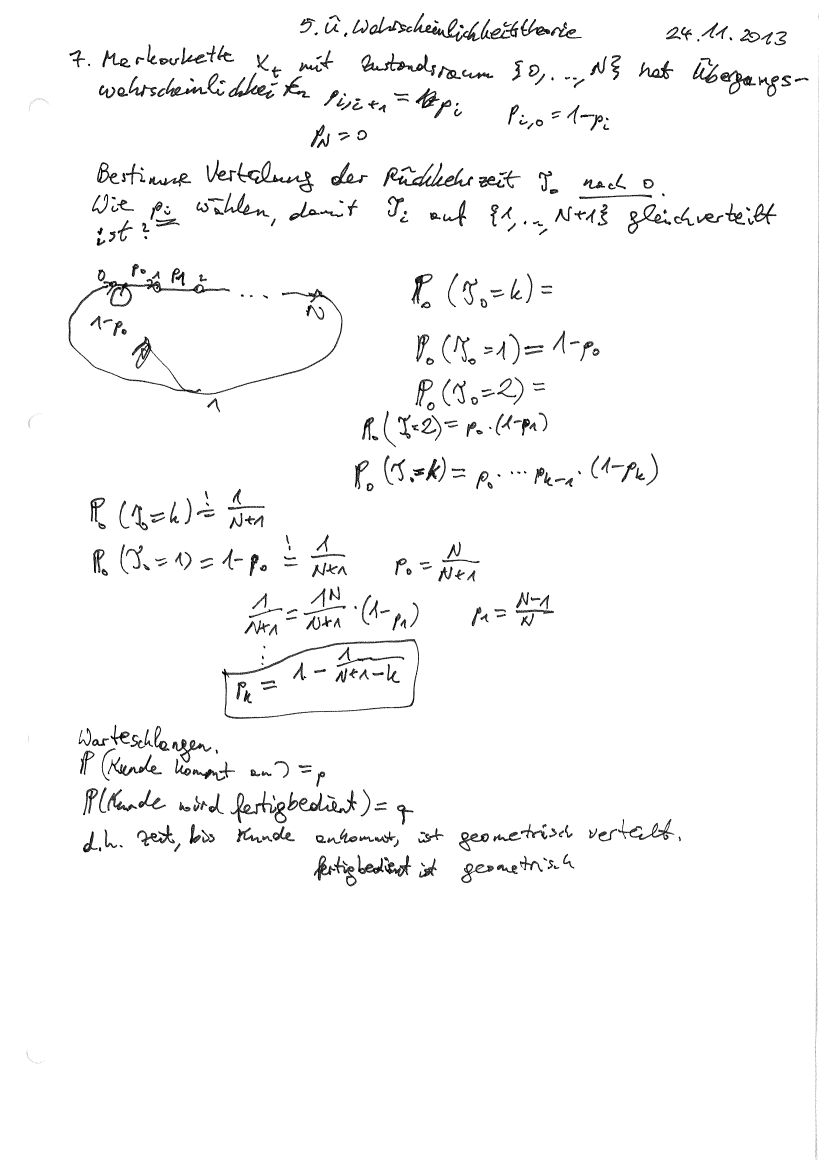 5. Ü. Wahrscheinlichkeitstheorie 24.11.2013
7. Markovkette X_t mit Zustandsraum {0,..,N} hat Übergangs-
wahrscheinlichkeiten p_{i,i+1} = p_i p_{i,0} = 1-p_i
p_N = 0
Bestimme Verteilung der Rückkehrzeit T_0 nach 0.
Wie p_i wählen, damit T_i auf {1,..,N+1} gleichverteilt
ist?
0 p_0 1 p_1 2 ... N
1-p_0
1
ℙ_0 (T_0 = k) =
ℙ_0 (T_0 = 1) = 1-p_0
ℙ_0 (T_0 = 2) =
ℙ_0 (T_0 = 2) = p_0 · (1-p_1)
ℙ_0 (T_0 = k) = p_0 · ... p_{k-1} · (1-p_k)
ℙ_0 (T_0 = k) =! 1/(N+1)
ℙ_0 (T_0 = 1) = 1-p_0 =! 1/(N+1) p_0 = N/(N+1)
1/(N+1) = N/(N+1) · (1-p_1) p_1 = (N-1)/N
⋮
p_k = 1 - 1/(N+1-k)
Warteschlangen.
ℙ(Kunde kommt an) = p
ℙ(Kunde wird fertigbedient) = q
d.h. Zeit, bis Kunde ankommt, ist geometrisch verteilt.
fertigbedient ist geometrisch